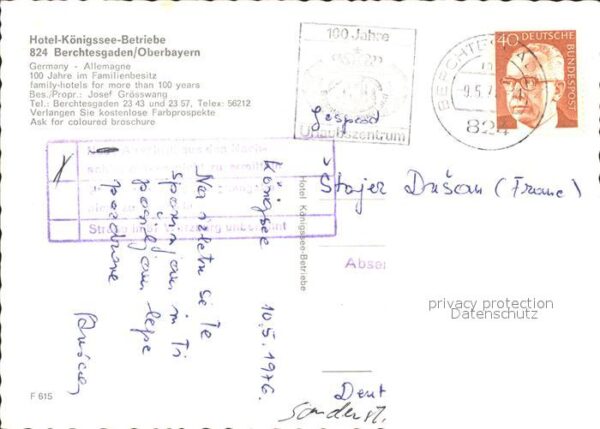 Hotel-Königssee-Betriebe
824 Berchtesgaden/Oberbayern
Germany - Allemagne
100 Jahre im Familienbesitz
family-hotels for more than 100 years
Bes./Propr.: Josef Grösswang
Tel.: Berchtesgaden 23 43 und 23 57, Telex: 56212
Verlangen Sie kostenlose Farbprospekte
Ask for coloured broschure
100 Jahre
Urlaubszentrum
BERCHTESGAD
9.5.7
824
40 DEUTSCHE
BUNDESPOST
Königsee 10,5.1976.
Na izletu se Te
spominjam in Ti
pošiljam lepe
pozdrave
Dušan
Hotel Königssee-Betriebe
Gospod
Štajer Dušan (Franc)
Absen
privacy protection
Datenschutz
F 615